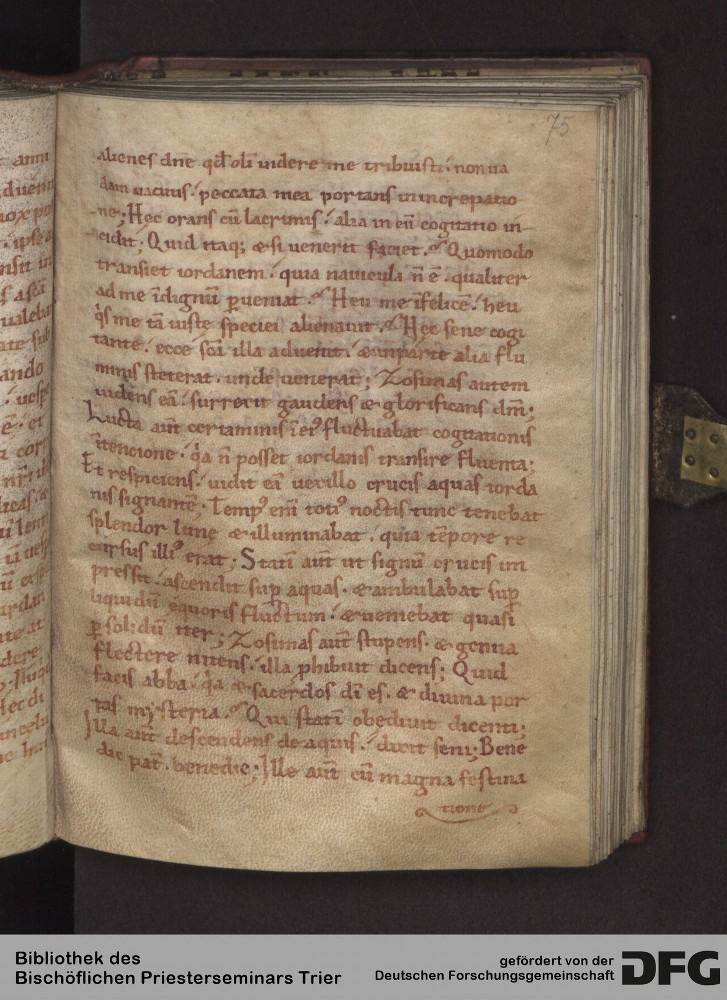 75
alienes dn̄e qd̄ oli uidere me tribuisti. non ua
dam uacuus. peccata mea portans in increpatio
ne; Hec orans cū lacrimis. alia in eū cogitatio in
cidit; Quid itaq; & si uenerit faciet. Quomodo
transiet iordanem. quia nauicula n̄ ē. qualiter
ad me īdignū ꝑueniat. Heu me īfelicē. heu
q̇s me tā iuste speciei alienauit. Hec sene cogi
tante. ecce sc̄a illa aduenit. & inparte alia flu
minis steterat. unde uenerat; Zosimas autem
uidens eā. surrexit gaudens & glorificans dm̄;
Lucta aūt certaminis ī eiꝰ fluctuabat cogitationis
ītencione. q̇a n̄ posset iordanis transire fluenta;
Et respiciens. uidit eā uexillo crucis aquas iorda
nis signantē; Tempꝰ em̄ totiꝰ noctis tunc tenebat
splendor lune & illuminabat. quia tēpore re
cursus illiꝰ erat; Statī aūt ut signū crucis im
pressit. ascendit suꝑ aquas. & ambulabat suꝑ
liquidū equoris fluctum. & ueniebat quasi
ꝑ solidū iter; Zosimas aūt stupens. & genua
flectere nitens. illa ꝓhibuit dicens; Quid
facis abba. q̇a & sacerdos dī es. & diuina por
tas mysteria. Qui statī obediuit dicenti;
Illa aūt descendens de aquis. dixit seni; Bene
dic pat̄. benedic; Ille aūt cū magna festina
tione
Bibliothek des
Bischöflichen Priesterseminars Trier
gefördert von der
Deutschen Forschungsgemeinschaft
DFG